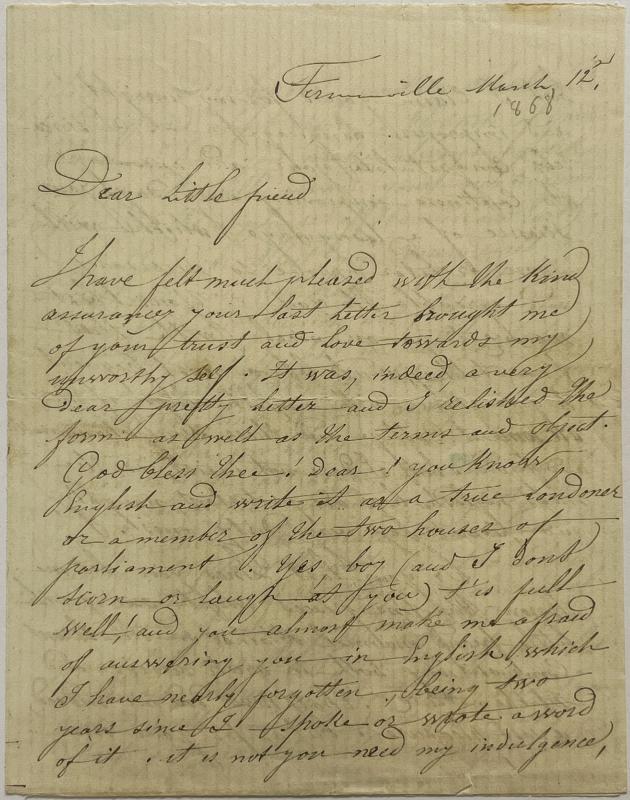 March, 12th,
1868
Dear Little friend
I have felt much pleased with the kind
assurances your last letter brought me
of your trust and love towards my
unworthy self. It was, indeed a very
dear pretty letter and I relished the
form as well as the terms and object.
God bless thee! Dear! you know
English and write it as a true Londoner
or a member of the two houses of
parliament. Yes boy (and I dont
scorn or laugh at you) t'is full
well! and you almost make me afraid
of answering you in English, which
I have nearly forgotten, being two
years since I spoke or wrote a word
of it. it is not you need my indulgence,